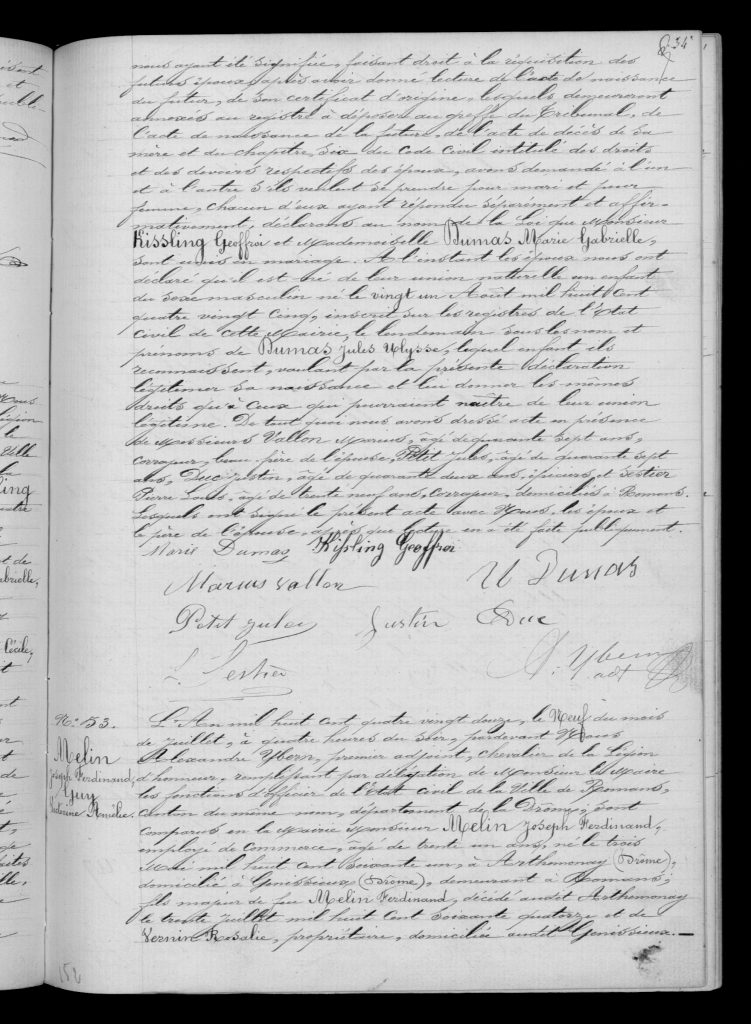 34
nous ayant été signifiée, faisant droit à la réquisition des
futurs époux, après avoir donné lecture de l'acte de naissance
du futur, de son certificat d'origine, lesquels demeureront
annexés au registre à déposer au greffe du Tribunal, de
l'acte de naissance de la future, de l'acte de décès de sa
mère et du chapitre six du Code Civil intitulé des droits
et des devoirs respectifs des époux, avons demandé à l'un
et à l'autre s'ils veulent se prendre pour mari et pour
femme, chacun d'eux ayant répondu séparément et affir-
mativement, déclarons au nom de la Loi que Monsieur
Kissling Geoffroi et Mademoiselle Dumas Marie Gabrielle,
sont unis en mariage. A l'instant les époux nous ont
déclaré qu'il est né de leur union naturelle un enfant
du sexe masculin né le vingt un Août mil huit cent
quatre vingt cinq, inscrit sur les registres de l'Etat
civil de cette Mairie, le lendemain sous les nom et
prénoms de Dumas Jules Ulysse, lequel enfant ils
reconnaissent, voulant par la présente déclaration
légitimer sa naissance et lui donner les mêmes
droits qu'à ceux qui pourraient naître de leur union
légitime. De tout quoi nous avons dressé acte en présence
de Messieurs Vallon Marius, âgé de quarante sept ans,
corroyeur, beau-frère de l'épouse, Petit Jules, âgé de quarante sept
ans, Duc Justin, âgé de quarante deux ans, épiciers, et Sestier
Pierre Louis, âgé de trente neuf ans, corroyeur, domiciliés à Romans.
Lesquels ont signé le présent acte avec Nous, les époux et
le père de l'épouse, après que lecture en a été faite publiquement.
Marie Dumas Kissling Geoffroi
Marius Vallon U Dumas
Petit Jules Justin Duc
L. Sestier A. Ybern
adt
N° 153.
Melin
Joseph Ferdinand,
Guy
Victorine Amélie.
L'An mil huit cent quatre vingt douze, le Neuf du mois
de Juillet, à quatre heures du soir, pardevant Nous
Alexandre Ybern, premier adjoint, chevalier de la Légion
d'honneur, remplissant par délégation de Monsieur le Maire
les fonctions d'officier de l'Etat civil de la Ville de Romans,
canton du même nom, département de la Drôme, sont
comparus en la Mairie Monsieur Melin Joseph Ferdinand,
employé de commerce, âgé de trente un ans, né le trois
Mai mil huit cent soixante un, à Arthemonay (Drôme),
domicilié à Génissieux (Drôme), demeurant à Romans,
fils majeur de feu Melin Ferdinand, décédé audit Arthemonay
le trente Juillet mil huit cent soixante quatorze et de
Vernin Rosalie, propriétaire, domiciliée audit Génissieux.
152